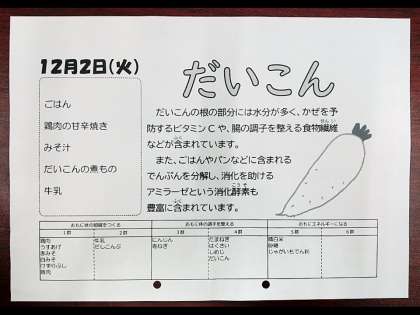 12月2日(火)
だいこん
ごはん
鶏肉の甘辛焼き
みそ汁
だいこんの煮もの
牛乳
だいこんの根の部分には水分が多く、かぜを予
防するビタミンCや、腸の調子を整える食物繊維
などが含まれています。
また、ごはんやパンなどに含まれる
でんぷんを分解し、消化を助ける
アミラーゼという消化酵素も
豊富に含まれています。
おもに体の組織をつくる
おもに体の調子を整える
おもにエネルギーになる
1群 2群 3群 4群 5群 6群
鶏肉
うすあげ
赤みそ
白みそ
けずりぶし
鶏肉
牛乳
だしこんぶ
にんじん
青ねぎ
たまねぎ
はくさい
しめじ
だいこん
精白米
砂糖
じゃがいもでん粉